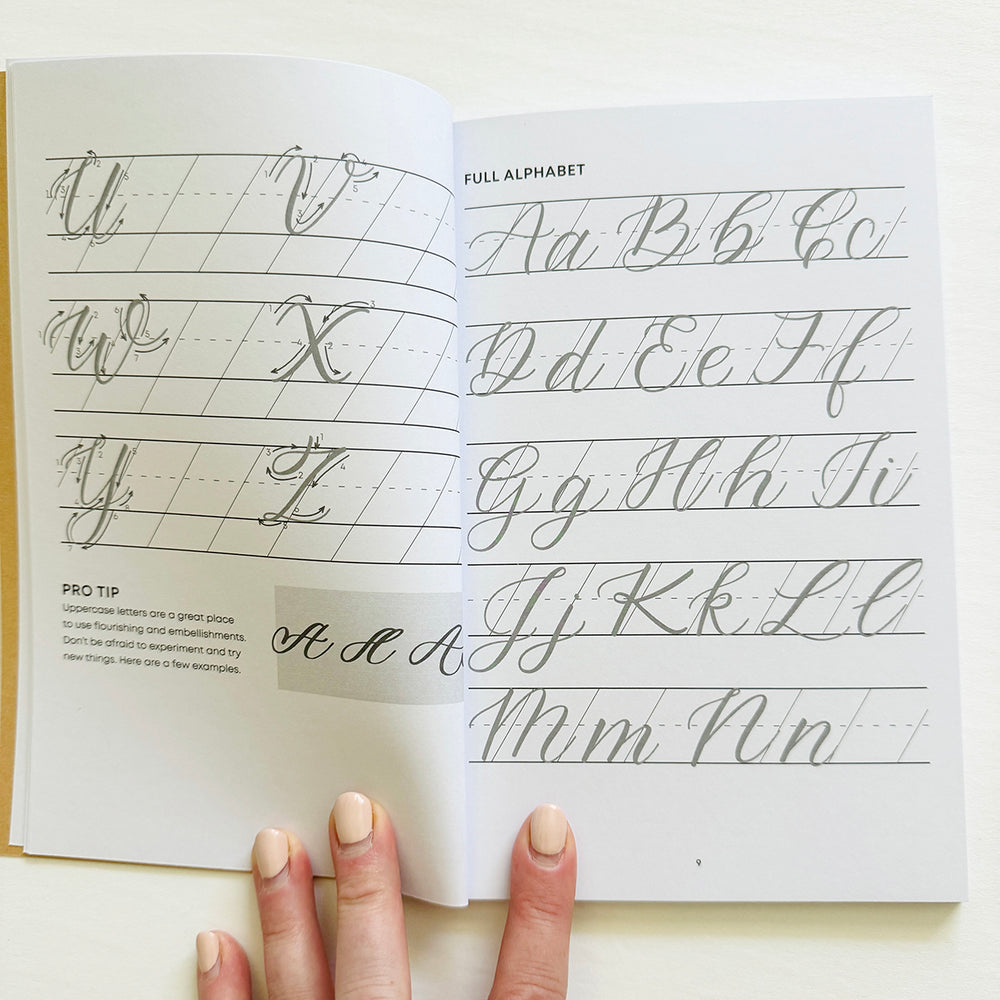 U V
W X
Y Z
PRO TIP
Uppercase letters are a great place
to use flourishing and embellishments.
Don't be afraid to experiment and try
new things. Here are a few examples.
A A A
FULL ALPHABET
Aa Bb Cc
Dd Ee Ff
Gg Hh Ii
Jj Kk Ll
Mm Nn
9